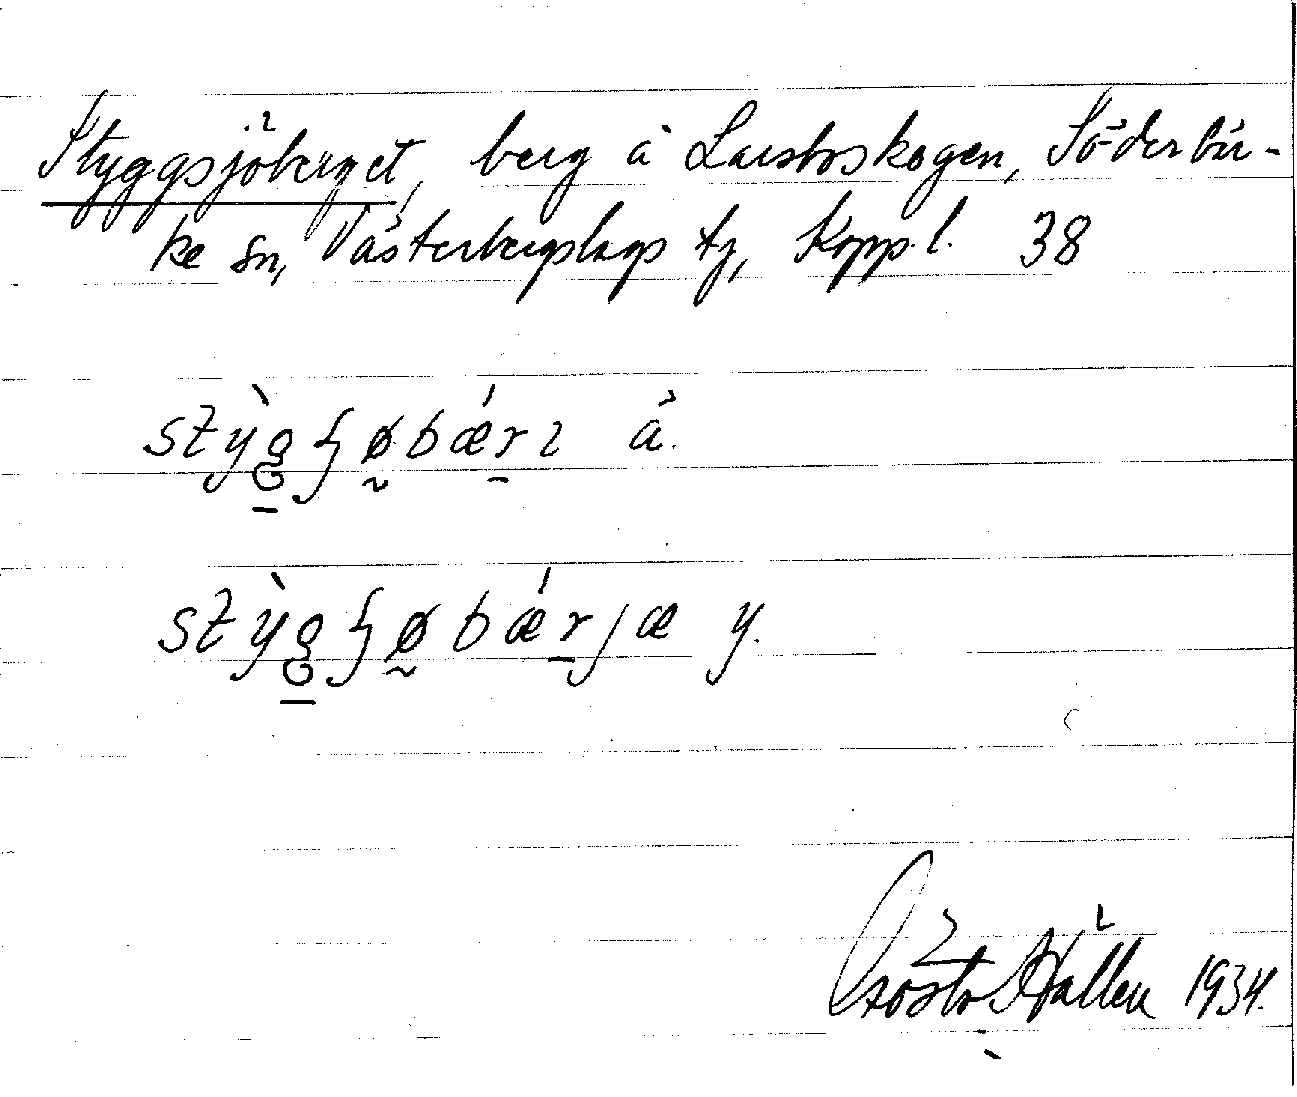 Styggsjöberget, berg å Larsboskogen, Söderbär-
ke sn, Västerbergslags tg, Kopp. l. 38
stỳgʃøbǽrı å.
stỳgʃøbǽrjæ y.
Gösta Hallén 1934.